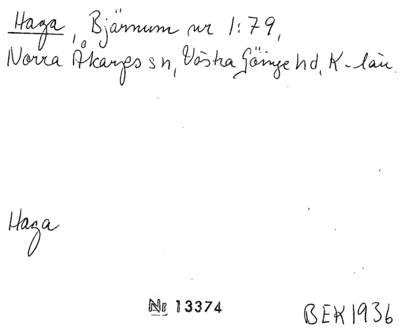 Haga, Bjärnum nr 1:79,
Norra Åkarps sn, Västra Göinge hd, K-län.
Haga
Nr 13374
BEK 1936